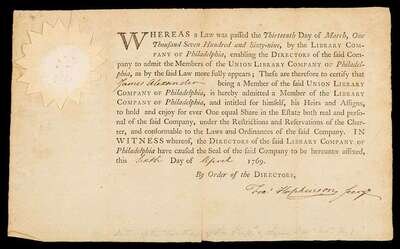 WHEREAS a Law was passed the Thirteenth Day of March, One
Thousand Seven Hundred and Sixty-nine, by the LIBRARY COM-
PANY OF Philadelphia, enabling the DIRECTORS of the said Com-
pany to admit the Members of the UNION LIBRARY COMPANY OF Philadel-
phia, as by the said Law more fully appears; These are therefore to certify that
James Alexander being a Member of the said UNION LIBRARY
COMPANY OF Philadelphia, is hereby admitted a Member of the LIBRARY
COMPANY OF Philadelphia, and intitled for himself, his Heirs and Assigns,
to hold and enjoy for ever One equal Share in the Estate both real and perso-
nal of the said Company, under the Restrictions and Reservations of the Char-
ter, and conformable to the Laws and Ordinances of the said Company. IN
WITNESS whereof, the DIRECTORS of the said LIBRARY COMPANY OF
Philadelphia have caused the Seal of the said Company to be hereunto affixed,
this Sixth Day of April 1769.
By Order of the DIRECTORS,
Fras Hopkinson Secry